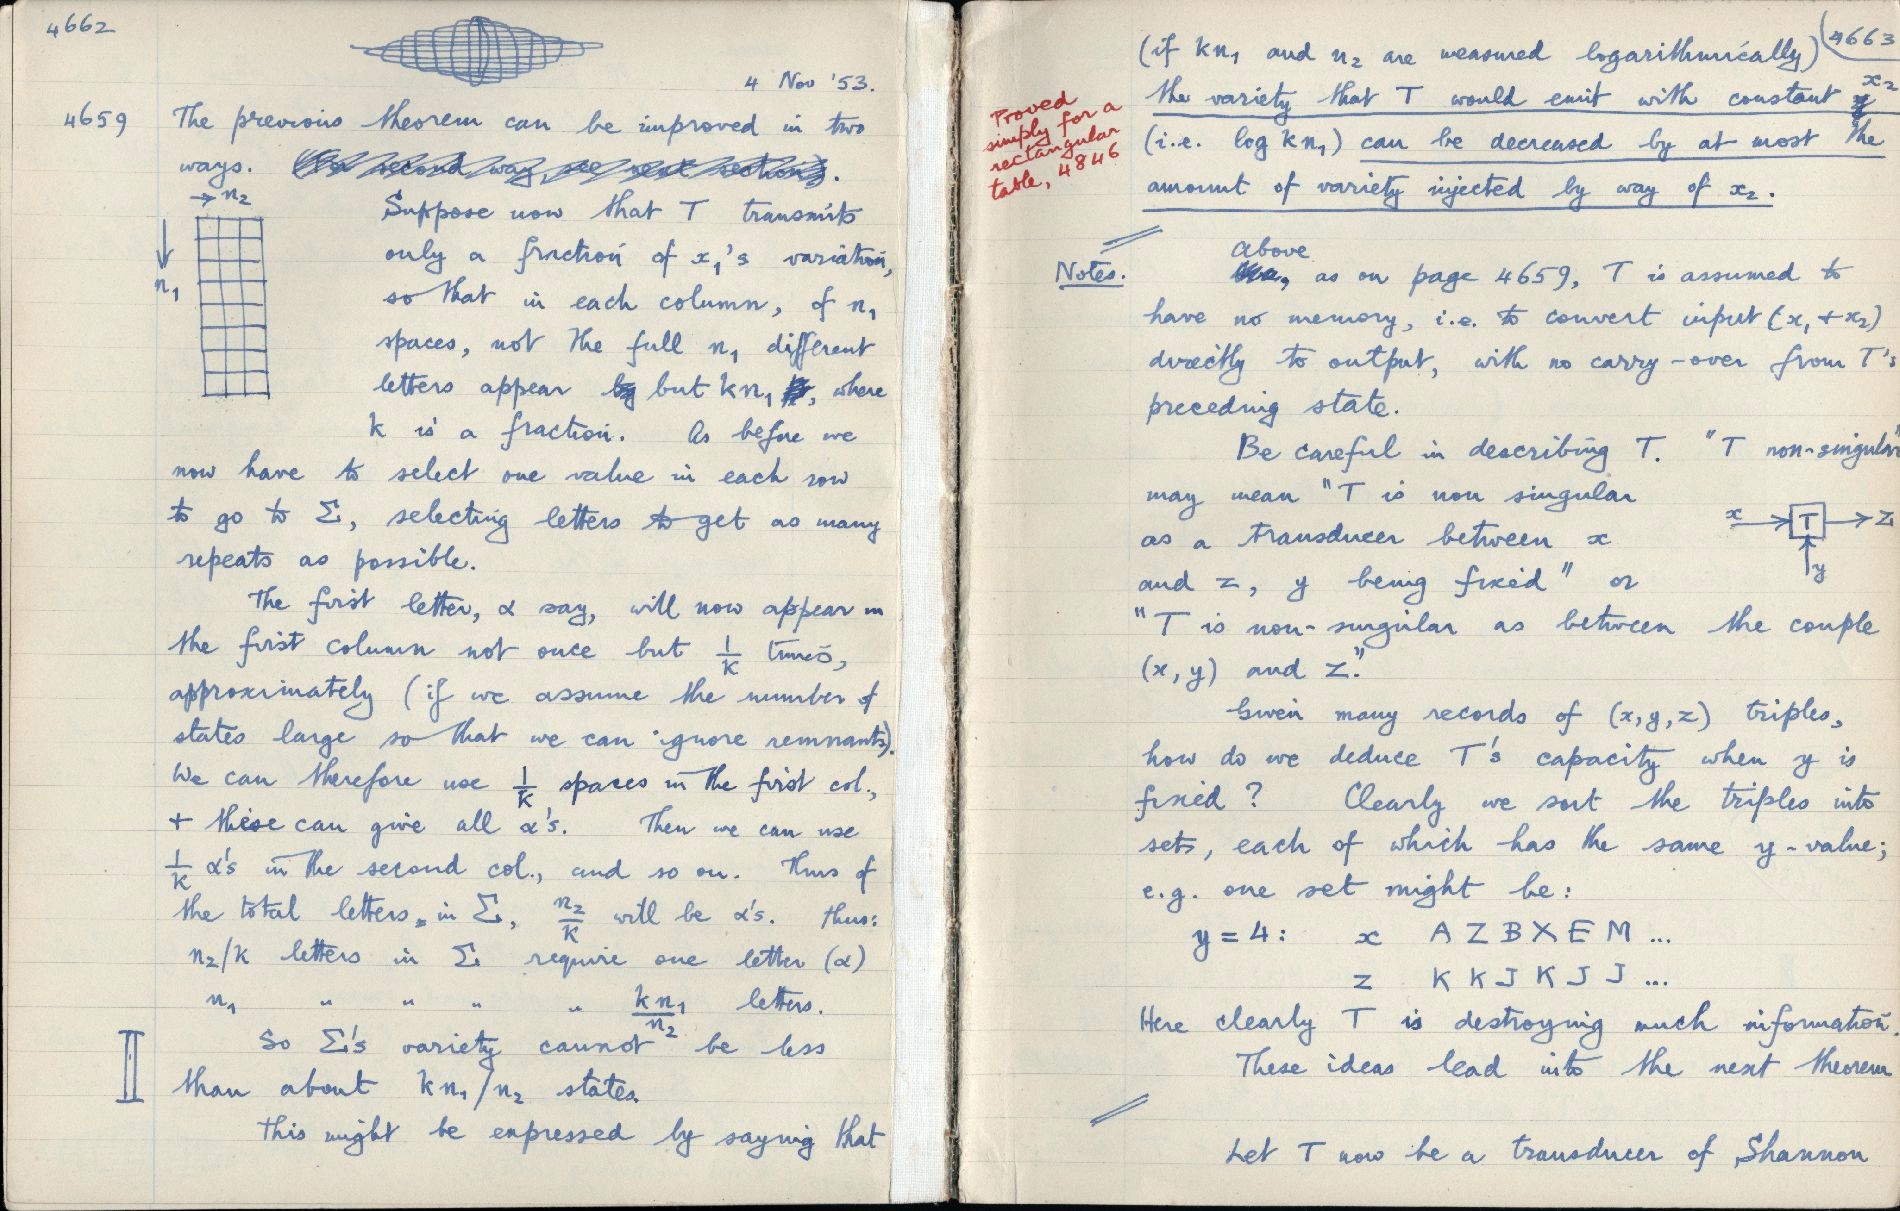 4662
4 Nov '53.
4659 The previous theorem can be improved in two
ways.
→ n₂
↓ n₁
Suppose now that T transmits
only a fraction of x₁'s variation,
so that in each column, of n₁
spaces, not the full n₁ different
letters appear but kn₁, where
k is a fraction. As before we
now have to select one value in each row
to go to Σ, selecting letters to get as many
repeats as possible.
The first letter, α say, will now appear in
the first column not once but 1/k times,
approximately (if we assume the number of
states large so that we can ignore remnants).
We can therefore use 1/k spaces in the first col.,
+ these can give all α's. Then we can use
1/k α's in the second col., and so on. Thus of
the total letters in Σ, n₂/k will be α's. Thus:
n₂/k letters in Σ require one letter (α)
n₁ " " " " kn₁/n₂ letters.
So Σ's variety cannot be less
than about kn₁/n₂ states.
This might be expressed by saying that
4663
(if kn₁ and n₂ are measured logarithmically)
the variety that T would emit with constant x₂
(i.e. log kn₁) can be decreased by at most the
amount of variety injected by way of x₂.
Proved
simply for a
rectangular
table, 4846
Above
Notes. as on page 4659, T is assumed to
have no memory, i.e. to convert input (x₁ + x₂)
directly to output, with no carry-over from T's
preceding state.
Be careful in describing T. "T non-singular"
may mean "T is non singular
as a transducer between x
and z, y being fixed" or
x → T → Z
↑ y
"T is non-singular as between the couple
(x, y) and Z."
Given many records of (x, y, z) triples,
how do we deduce T's capacity when y is
fixed? Clearly we sort the triples into
sets, each of which has the same y-value;
e.g. one set might be:
y = 4: x A Z B X E M ...
z K K J K J J ...
Here clearly T is destroying much information.
These ideas lead into the next theorem
Let T now be a transducer of Shannon